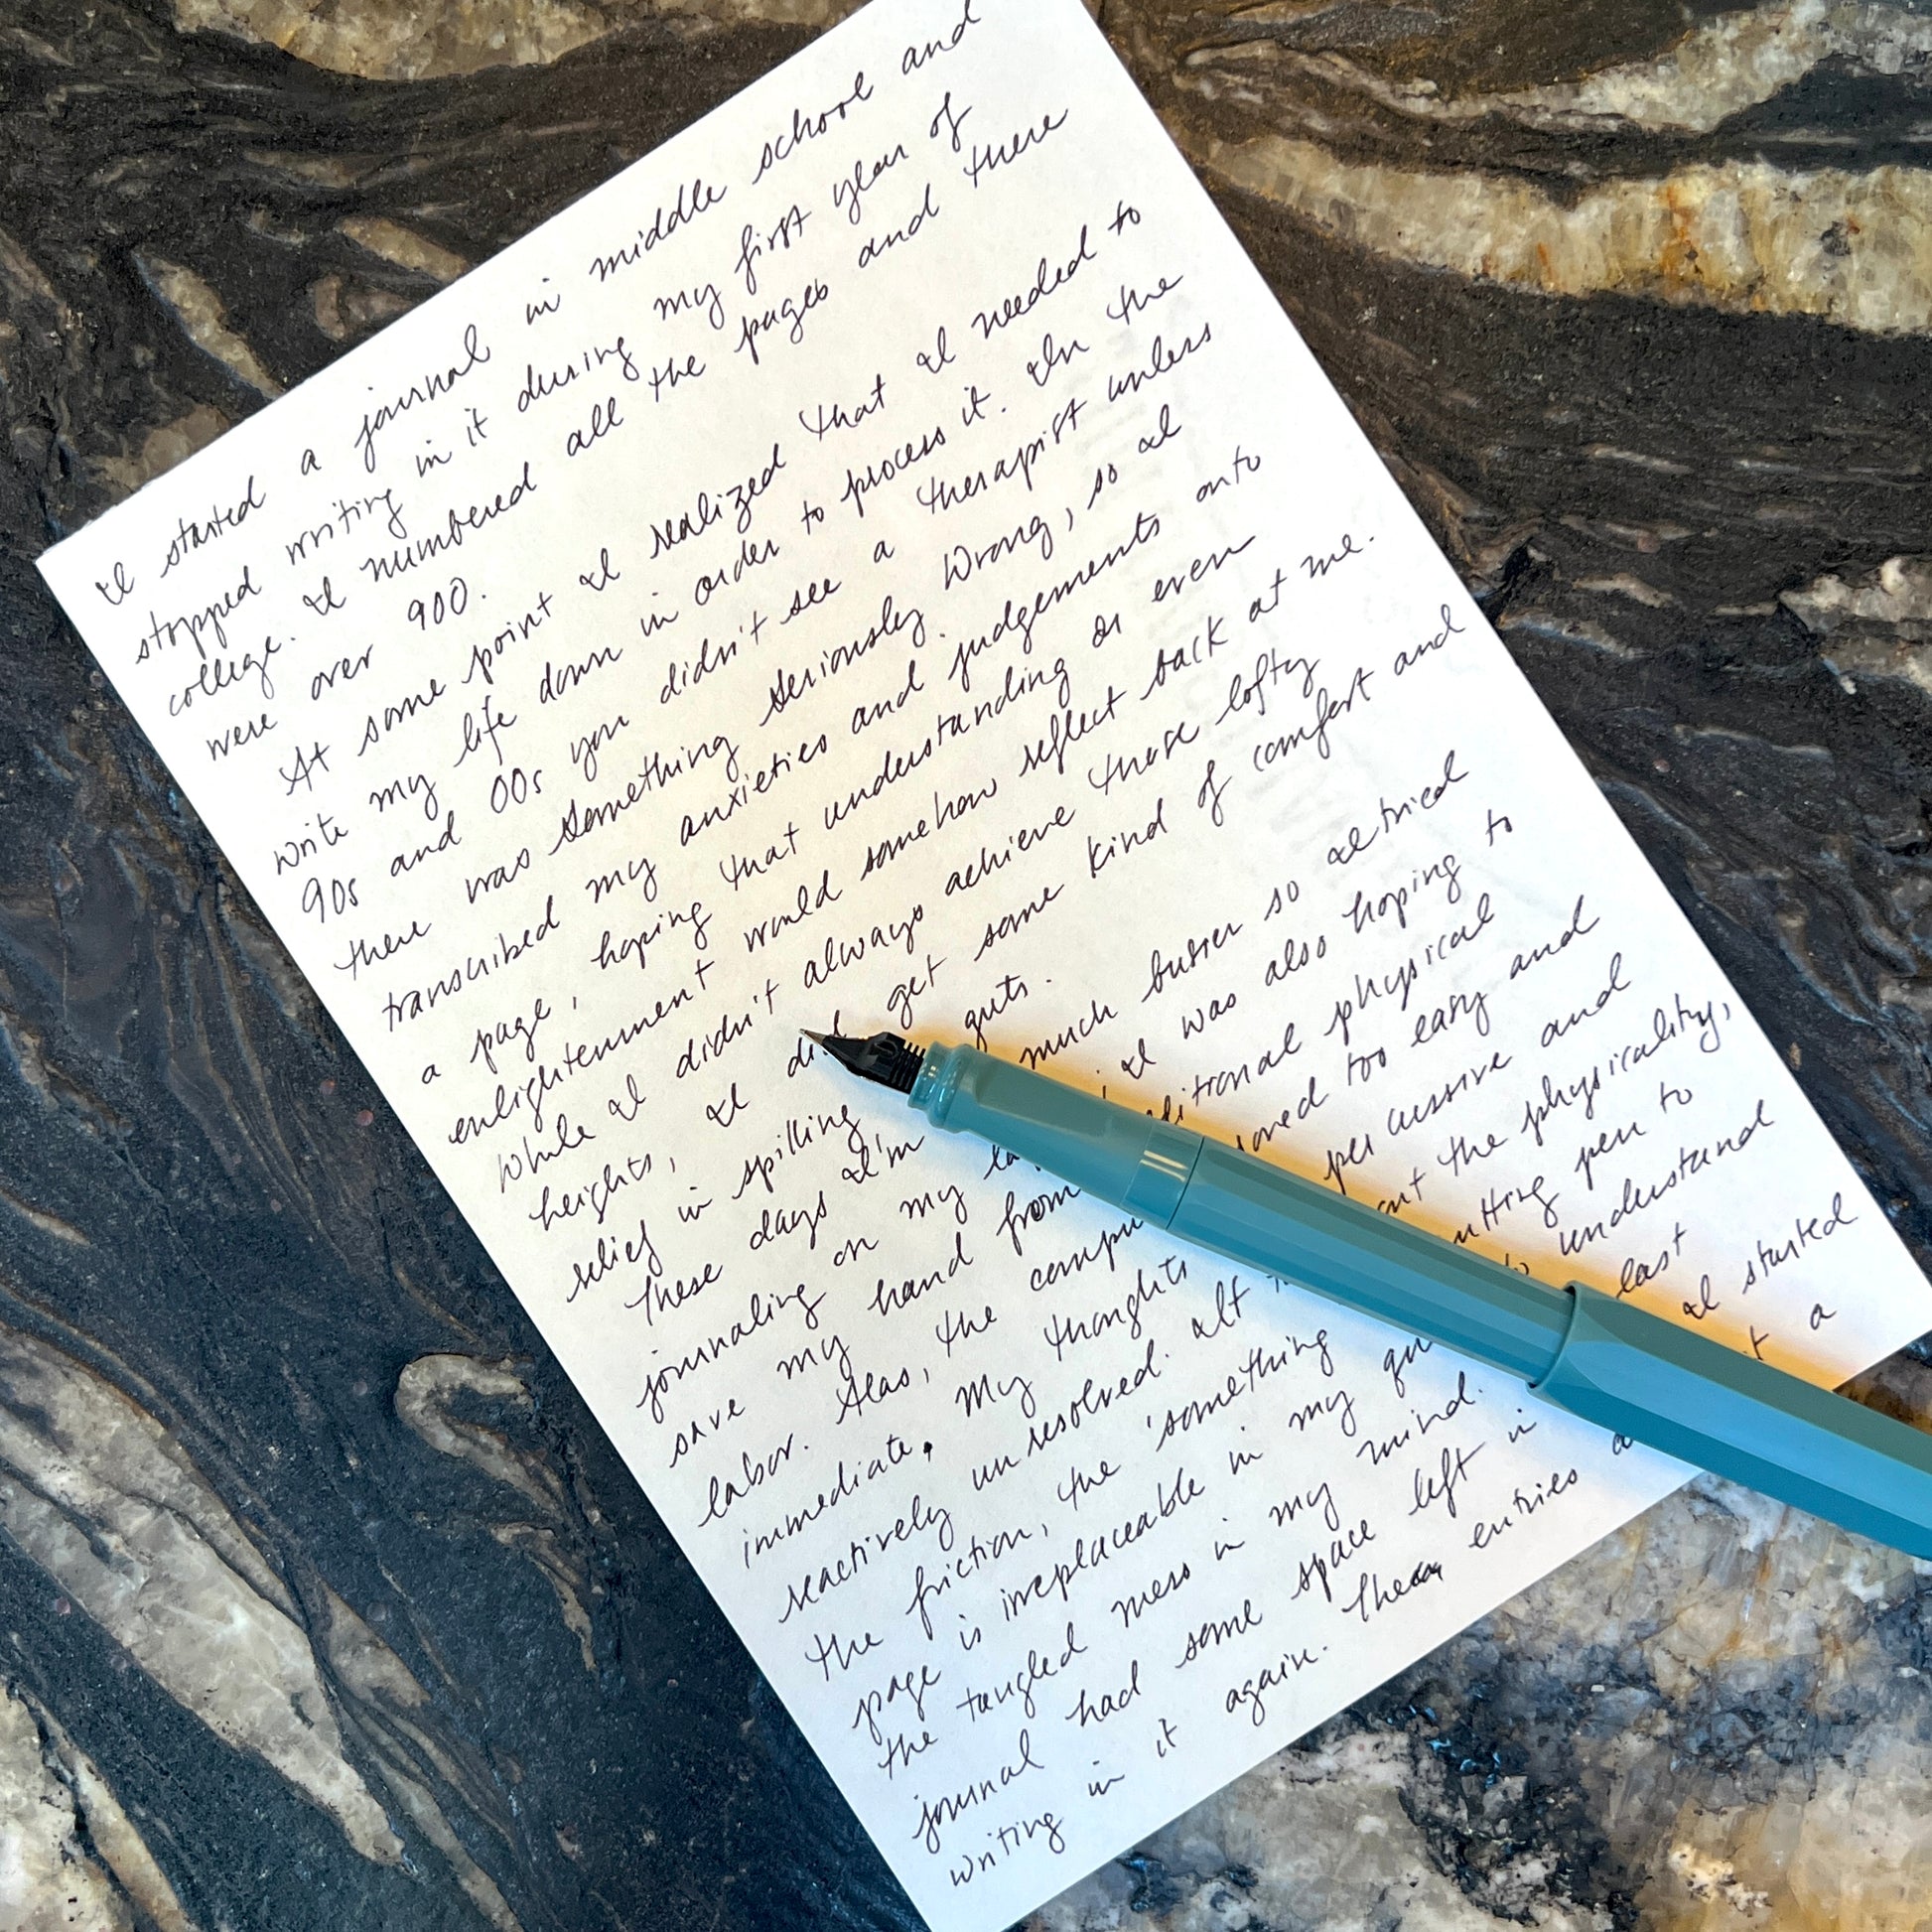 I started a journal in middle school and
stopped writing in it during my first year of
college. I numbered all the pages and there
were over 900.
At some point I realized that I needed to
write my life down in order to process it. In the
90s and 00s you didn't see a therapist unless
there was something seriously wrong, so I
transcribed my anxieties and judgements onto
a page, hoping that understanding or even
enlightenment would somehow reflect back at me.
While I didn't always achieve those lofty
heights, I did get some kind of comfort and
relief in spilling guts.
These days I'm much busier so I tried
journaling on my ; I was also hoping to
save my hand from physical
labor. Alas, the too easy and
immediate. My thoughts percussive and
reactively unresolved. It the physicality,
the friction, the 'something pen to
page is irreplaceable in my understand
the tangled mess in my mind. last
journal had some space left in I started
writing in it again. entries a